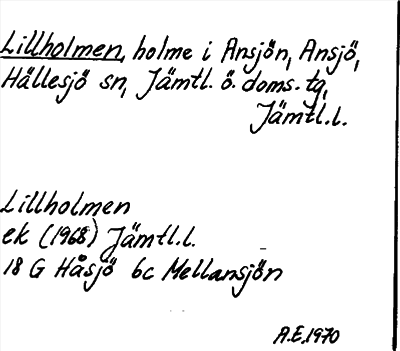 Lillholmen, holme i Ansjön, Ansjö,
Hällesjö sn, Jämtl. ö. doms. tg,
Jämtl.l.
Lillholmen
ek (1968) Jämtl.l.
18 G Håsjö 6c Mellansjön
A.E.1970